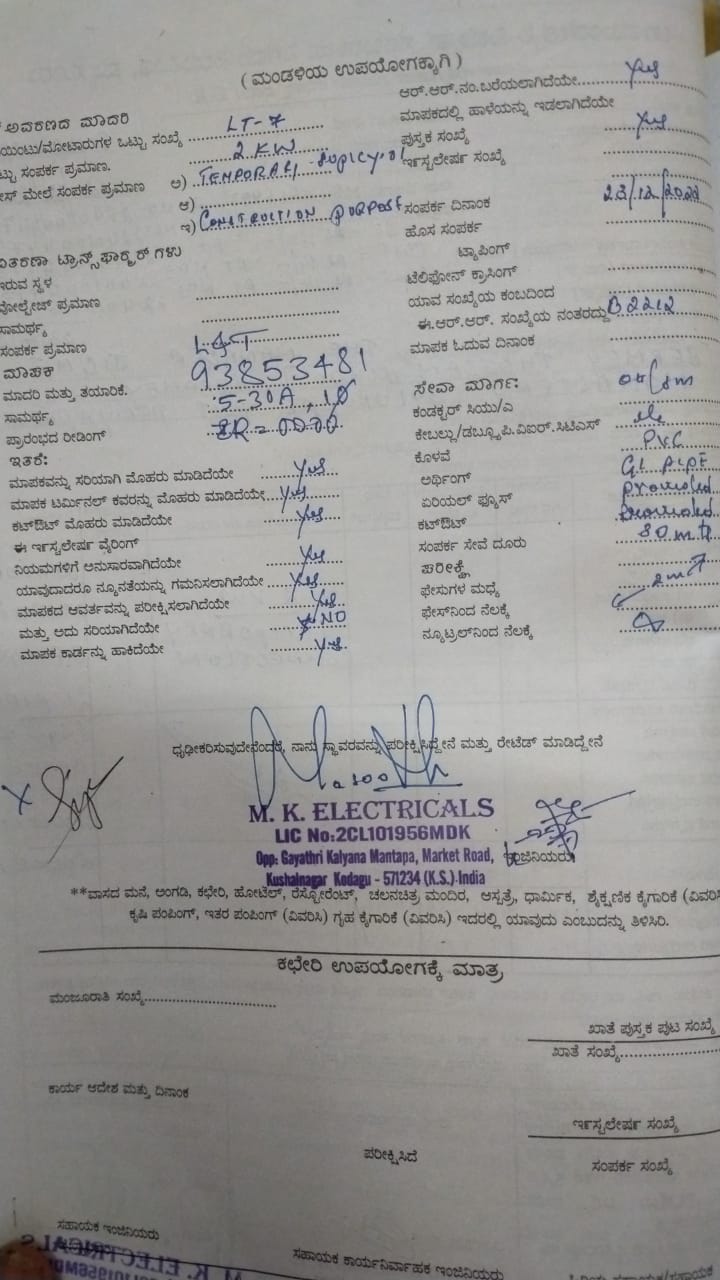 ( ಮಂಡಳಿಯ ಉಪಯೋಗಕ್ಕಾಗಿ )
ಅವರಣದ ಮಾದರಿ LT-7
ಯಿಂಟು/ಮೋಟಾರುಗಳ ಒಟ್ಟು ಸಂಖ್ಯೆ 2 KW
ಟ್ಟು ಸಂಪರ್ಕ ಪ್ರಮಾಣ.
ಮೇಲೆ ಸಂಪರ್ಕ ಪ್ರಮಾಣ ಅ)
ಆ)
ಇ) CONSTRUCTION PURPOSE
ಟ್ರಾನ್ಸ್‌ಫಾರ್ಮರ್ ಗಳು
ಇರುವ ಸ್ಥಳ
ವೋಲ್ಟೇಜ್ ಪ್ರಮಾಣ
ಸಾಮರ್ಥ್ಯ
ಸಂಪರ್ಕ ಪ್ರಮಾಣ
ಮಾಪಕ L&T
ಮಾದರಿ ಮತ್ತು ತಯಾರಿಕೆ. 93853481
ಸಾಮರ್ಥ್ಯ 5-30A
ಪ್ರಾರಂಭದ ರೀಡಿಂಗ್
ಇತರೆ:
ಮಾಪಕವನ್ನು ಸರಿಯಾಗಿ ಮೊಹರು ಮಾಡಿದೆಯೇ Yes
ಮಾಪಕ ಟರ್ಮಿನಲ್ ಕವರನ್ನು ಮೊಹರು ಮಾಡಿದೆಯೇ Yes
ಕಟ್‌ಔಟ್ ಮೊಹರು ಮಾಡಿದೆಯೇ Yes
ಈ ಇನ್ಸ್ಟಲೇಷನ್ ವೈರಿಂಗ್
ನಿಯಮಗಳಿಗೆ ಅನುಸಾರವಾಗಿದೆಯೇ Yes
ಯಾವುದಾದರೂ ನ್ಯೂನತೆಯನ್ನು ಗಮನಿಸಲಾಗಿದೆಯೇ Yes
ಮಾಪಕದ ಆವರ್ತವನ್ನು ಪರೀಕ್ಷಿಸಲಾಗಿದೆಯೇ Yes
ಮತ್ತು ಅದು ಸರಿಯಾಗಿದೆಯೇ NO
ಮಾಪಕ ಕಾರ್ಡನ್ನು ಹಾಕಿದೆಯೇ Yes
ಆರ್.ಆರ್.ನಂ.ಬರೆಯಲಾಗಿದೆಯೇ Yes
ಮಾಪಕದಲ್ಲಿ ಹಾಳೆಯನ್ನು ಇಡಲಾಗಿದೆಯೇ
ಪುಸ್ತಕ ಸಂಖ್ಯೆ Yes
ಇನ್ಸ್ಟಲೇಷನ್ ಸಂಖ್ಯೆ
ಸಂಪರ್ಕ ದಿನಾಂಕ
ಹೊಸ ಸಂಪರ್ಕ
ಟ್ಯಾಪಿಂಗ್
ಟೆಲಿಫೋನ್ ಕ್ರಾಸಿಂಗ್
ಯಾವ ಸಂಖ್ಯೆಯ ಕಂಬದಿಂದ
ಈ.ಆರ್.ಆರ್. ಸಂಖ್ಯೆಯ ನಂತರದ್ದು B2212
ಮಾಪಕ ಓದುವ ದಿನಾಂಕ
ಸೇವಾ ಮಾರ್ಗ:
ಕಂಡಕ್ಟರ್ ಸಿಯು/ಎ
ಕೇಬಲ್ಲು/ಡಬ್ಲ್ಯೂ.ಪಿ.ವಿಐಆರ್.ಸಿಟಿಎಸ್
ಕೊಳವೆ PVC
ಅರ್ಥಿಂಗ್ GI PIPE
ಏರಿಯಲ್ ಫ್ಯೂಸ್ provided
ಕಟ್‌ಔಟ್ provided
ಸಂಪರ್ಕ ಸೇವೆ ದೂರು
ಪರೀಕ್ಷೆ
ಫೇಸುಗಳ ಮಧ್ಯೆ
ಫೇಸ್‌ನಿಂದ ನೆಲಕ್ಕೆ
ನ್ಯೂಟ್ರಲ್‌ನಿಂದ ನೆಲಕ್ಕೆ
ಧೃಢೀಕರಿಸುವುದೇನೆಂದರೆ, ನಾನು ಸ್ಥಾವರವನ್ನು ಪರೀಕ್ಷಿಸಿದ್ದೇನೆ ಮತ್ತು ರೇಟೆಡ್ ಮಾಡಿದ್ದೇನೆ
M. K. ELECTRICALS
LIC No:2CL101956MDK
Opp: Gayathri Kalyana Mantapa, Market Road,
ಇಂಜಿನಿಯರು
Kushalnagar Kodagu - 571234 (K.S.) India
**ವಾಸದ ಮನೆ, ಅಂಗಡಿ, ಕಛೇರಿ, ಹೋಟೆಲ್, ರೆಸ್ಟೋರೆಂಟ್, ಚಲನಚಿತ್ರ ಮಂದಿರ, ಆಸ್ಪತ್ರೆ, ಧಾರ್ಮಿಕ, ಶೈಕ್ಷಣಿಕ ಕೈಗಾರಿಕೆ (ವಿವರಿಸಿ
ಕೃಷಿ ಪಂಪಿಂಗ್, ಇತರ ಪಂಪಿಂಗ್ (ವಿವರಿಸಿ) ಗೃಹ ಕೈಗಾರಿಕೆ (ವಿವರಿಸಿ) ಇದರಲ್ಲಿ ಯಾವುದು ಎಂಬುದನ್ನು ತಿಳಿಸಿರಿ.
ಕಛೇರಿ ಉಪಯೋಗಕ್ಕೆ ಮಾತ್ರ
ಮಂಜೂರಾತಿ ಸಂಖ್ಯೆ
ಖಾತೆ ಪುಸ್ತಕ ಪುಟ ಸಂಖ್ಯೆ
ಖಾತೆ ಸಂಖ್ಯೆ
ಕಾರ್ಯ ಆದೇಶ ಮತ್ತು ದಿನಾಂಕ
ಇನ್ಸ್ಟಲೇಷನ್ ಸಂಖ್ಯೆ
ಪರೀಕ್ಷಿಸಿದೆ
ಸಂಪರ್ಕ ಸಂಖ್ಯೆ
ಸಹಾಯಕ ಇಂಜಿನಿಯರು
ಸಹಾಯಕ ಕಾರ್ಯನಿರ್ವಾಹಕ ಇಂಜಿನಿಯರು